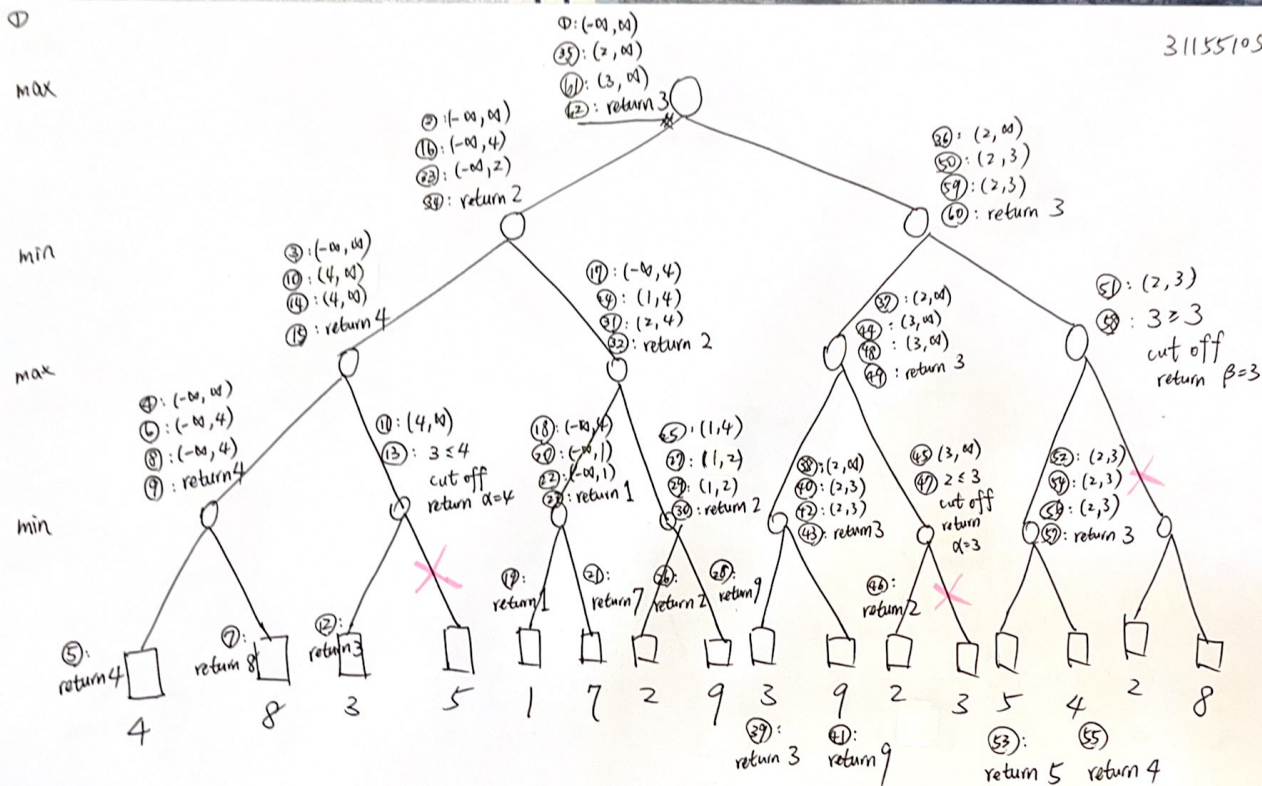 ①
①: (-∞, ∞)
㉟: (2, ∞)
61: (3, ∞)
62: return 3
31155105
max
②: (-∞, ∞)
⑯: (-∞, 4)
㉝: (-∞, 2)
㉞: return 2
㊱: (2, ∞)
㊿: (2, 3)
59: (2, 3)
60: return 3
min
③: (-∞, ∞)
⑩: (4, ∞)
⑭: (4, ∞)
⑮: return 4
⑰: (-∞, 4)
㉔: (1, 4)
㉛: (2, 4)
㉜: return 2
㊲: (2, ∞)
㊹: (3, ∞)
㊽: (3, ∞)
㊾: return 3
51: (2, 3)
58: 3 ≥ 3
cut off
return β=3
max
④: (-∞, ∞)
⑥: (-∞, 4)
⑧: (-∞, 4)
⑨: return 4
⑪: (4, ∞)
⑬: 3 ≤ 4
cut off
return α=4
⑱: (-∞, 4)
⑳: (-∞, 1)
㉒: (-∞, 1)
㉓: return 1
㉕: (1, 4)
㉗: (1, 2)
㉙: (1, 2)
㉚: return 2
㊳: (2, ∞)
㊵: (2, 3)
㊷: (2, 3)
㊸: return 3
㊺ (3, ∞)
㊼ 2 ≤ 3
cut off
return
α=3
52: (2, 3)
54: (2, 3)
56: (2, 3)
57: return 3
min
⑤:
return 4
⑦:
return 8
⑫:
return 3
⑲:
return 1
㉑:
return 7
㉖:
return 2
㉘:
return 9
㊻:
return 2
4 8 3 5 1 7 2 9 3 9 2 3 5 4 2 8
㊴:
return 3
㊶:
return 9
53:
return 5
55
return 4